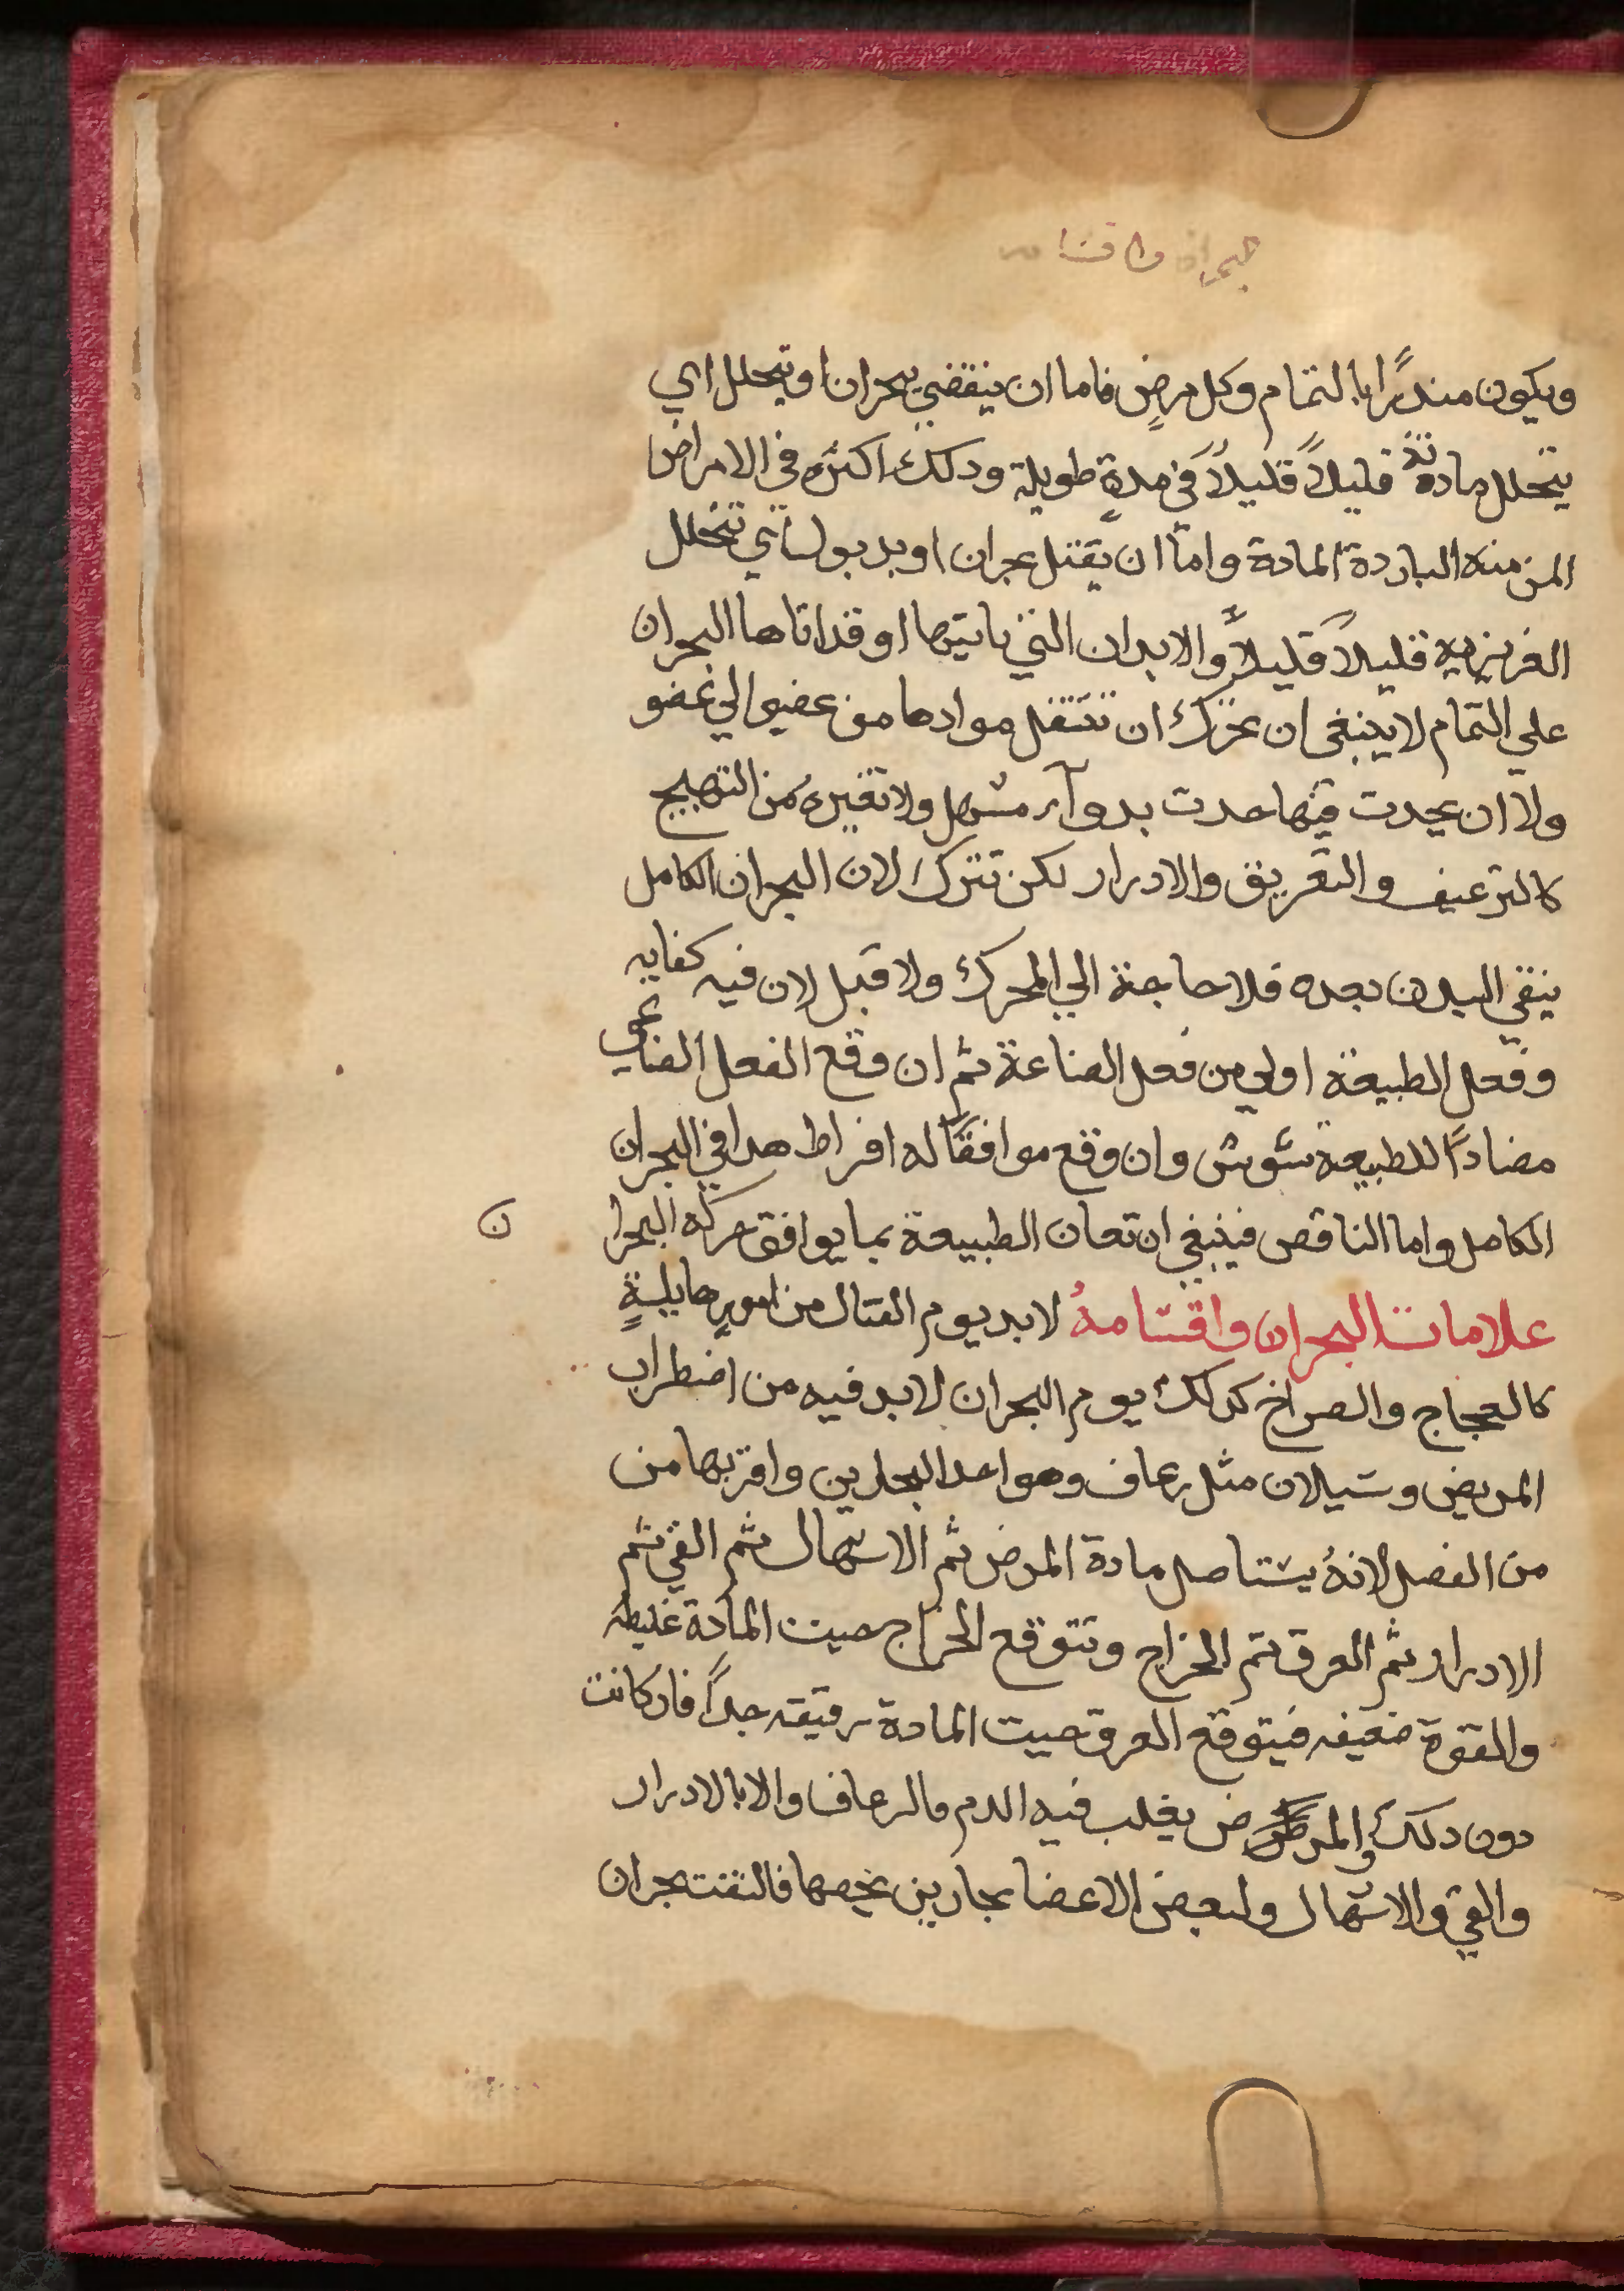 البحران واقسامه
ويكون منذرًا بالتمام وكل مرضٍ فاما ان ينقضي ببحران او يتحلل اي
يتحلل مادته قليلاً قليلاً في مدةٍ طويلة ودلك اكثره في الامراض
المزمنه الباردة المادة واما ان يقتل ببحران او بدبول اي تتحلل
الغريزيه قليلاً قليلاً والابدان التي ياتيها او قد اتاها البحران
علي التمام لا ينبغي ان تحرك ان تنتقل موادها من عضو الي عضو
ولا ان يحدت فيها حدت بدوآء مسهل ولا بغيره من التهييج
كالترعيف والتعريق والادرار لكن تترك لان البحران الكامل
ينقي البدن بعده فلا حاجة الي المحرك ولا قبل لان فيه كفايه
وفعل الطبيعة اولي من فعل الصناعة ثم ان وقع الفعل الصناعي
مضادًا للطبيعة شوش وان وقع موافقًا له افراط هدا في البحران
الكامل واما الناقص فينبغي ان تعان الطبيعة بما يوافق حركه البحران
علامات البحران واقسامهُ لابد يوم القتال من امورٍ هايلةٍ
كالعجاج والصراخ كدلك يوم البحران لابد فيه من اضطراب
المريض وسيلان مثل رعاف وهو احد البحارين واقربها من
من الفصل لانهُ يستاصل مادة المرض ثم الاسهال ثم القي ثم
الادرار ثم العرق ثم الخراج وتتوقع الخراج حيت المادة غليطه
والقوة ضعيفه فيتوقع العرق حيت المادة رقيقه جدًا فان كانت
دون دلك والمرض يغلب فيه الدم فالرعاف والا بالادرار
والقي والاسهال ولبعض الاعضا بحارين يخصها فالنفت بحران